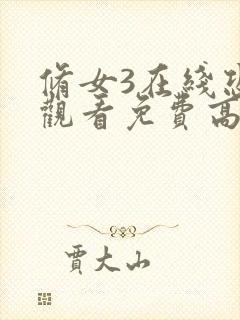 脩女3在綫
觀看免費高
賈大山